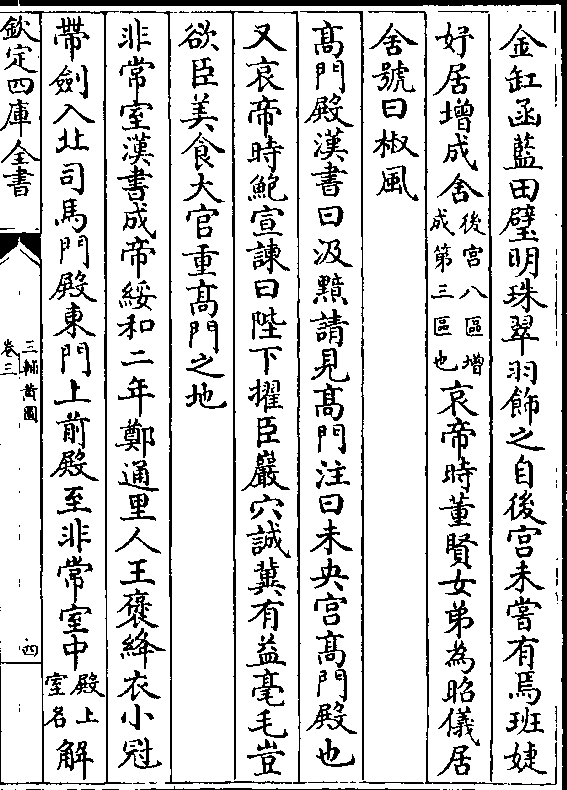 金釭函藍田璧明珠翠羽飾之自後宮未嘗有焉班婕
妤居增成舍後宮八區增成第三區也哀帝時董賢女弟為昭儀居
舍號曰椒風
髙門殿漢書曰汲黯請見髙門注曰未央宮髙門殿也
又哀帝時鮑宣諫曰陛下擢臣巖穴誠兾有益毫毛豈
欲臣美食大官重髙門之地
非常室漢書成帝綏和二年鄭通里人王褒絳衣小冠
帶劍入北司馬門殿東門上前殿至非常室中殿上室名解
欽定四庫全書
三輔黃圖
卷三
四